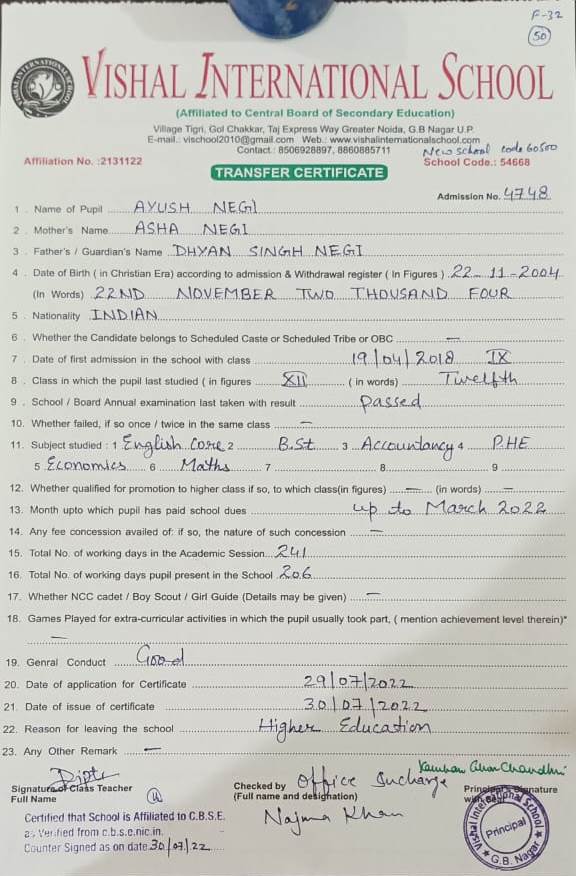 F-32
50
VISHAL INTERNATIONAL SCHOOL
(Affiliated to Central Board of Secondary Education)
Village Tigri, Gol Chakkar, Taj Express Way Greater Noida, G.B Nagar U.P.
E-mail.: vischool2010@gmail.com Web.: www.vishalinternationalschool.com
Contact.: 8506928897, 8860885711
New School Code 60500
Affiliation No. :2131122 School Code.: 54668
TRANSFER CERTIFICATE
Admission No. 4748
1 . Name of Pupil AYUSH NEGI
2 . Mother's Name ASHA NEGI
3 . Father's / Guardian's Name DHYAN SINGH NEGI
4 . Date of Birth ( in Christian Era) according to admission & Withdrawal register ( In Figures ) 22-11-2004
(In Words) 22ND NOVEMBER TWO THOUSAND FOUR
5 . Nationality INDIAN
6 . Whether the Candidate belongs to Scheduled Caste or Scheduled Tribe or OBC —
7 . Date of first admission in the school with class 19/04/2018 IX
8 . Class in which the pupil last studied ( in figures XII ( in words) Twelfth
9 . School / Board Annual examination last taken with result passed
10. Whether failed, if so once / twice in the same class —
11. Subject studied : 1 English Core 2 B.St 3 Accountancy 4 P.HE
5 Economics 6 Maths 7 8 9
12. Whether qualified for promotion to higher class if so, to which class(in figures) — (in words) —
13. Month upto which pupil has paid school dues up to March 2022
14. Any fee concession availed of: if so, the nature of such concession —
15. Total No. of working days in the Academic Session 241
16. Total No. of working days pupil present in the School 206
17. Whether NCC cadet / Boy Scout / Girl Guide (Details may be given) —
18. Games Played for extra-curricular activities in which the pupil usually took part, ( mention achievement level therein)*
—
19. Genral Conduct Good
20. Date of application for Certificate 29/07/2022
21. Date of issue of certificate 30/07/2022
22. Reason for leaving the school Higher Education
23. Any Other Remark —
Dipti
Signature of Class Teacher
Full Name
Checked by Office Incharge
(Full name and designation)
Najma Khan
Principal's Signature
with Seal
Certified that School is Affiliated to C.B.S.E.
as Verified from c.b.s.e.nic.in.
Counter Signed as on date 30/07/22
Vishal International School
Principal
G.B. Nagar